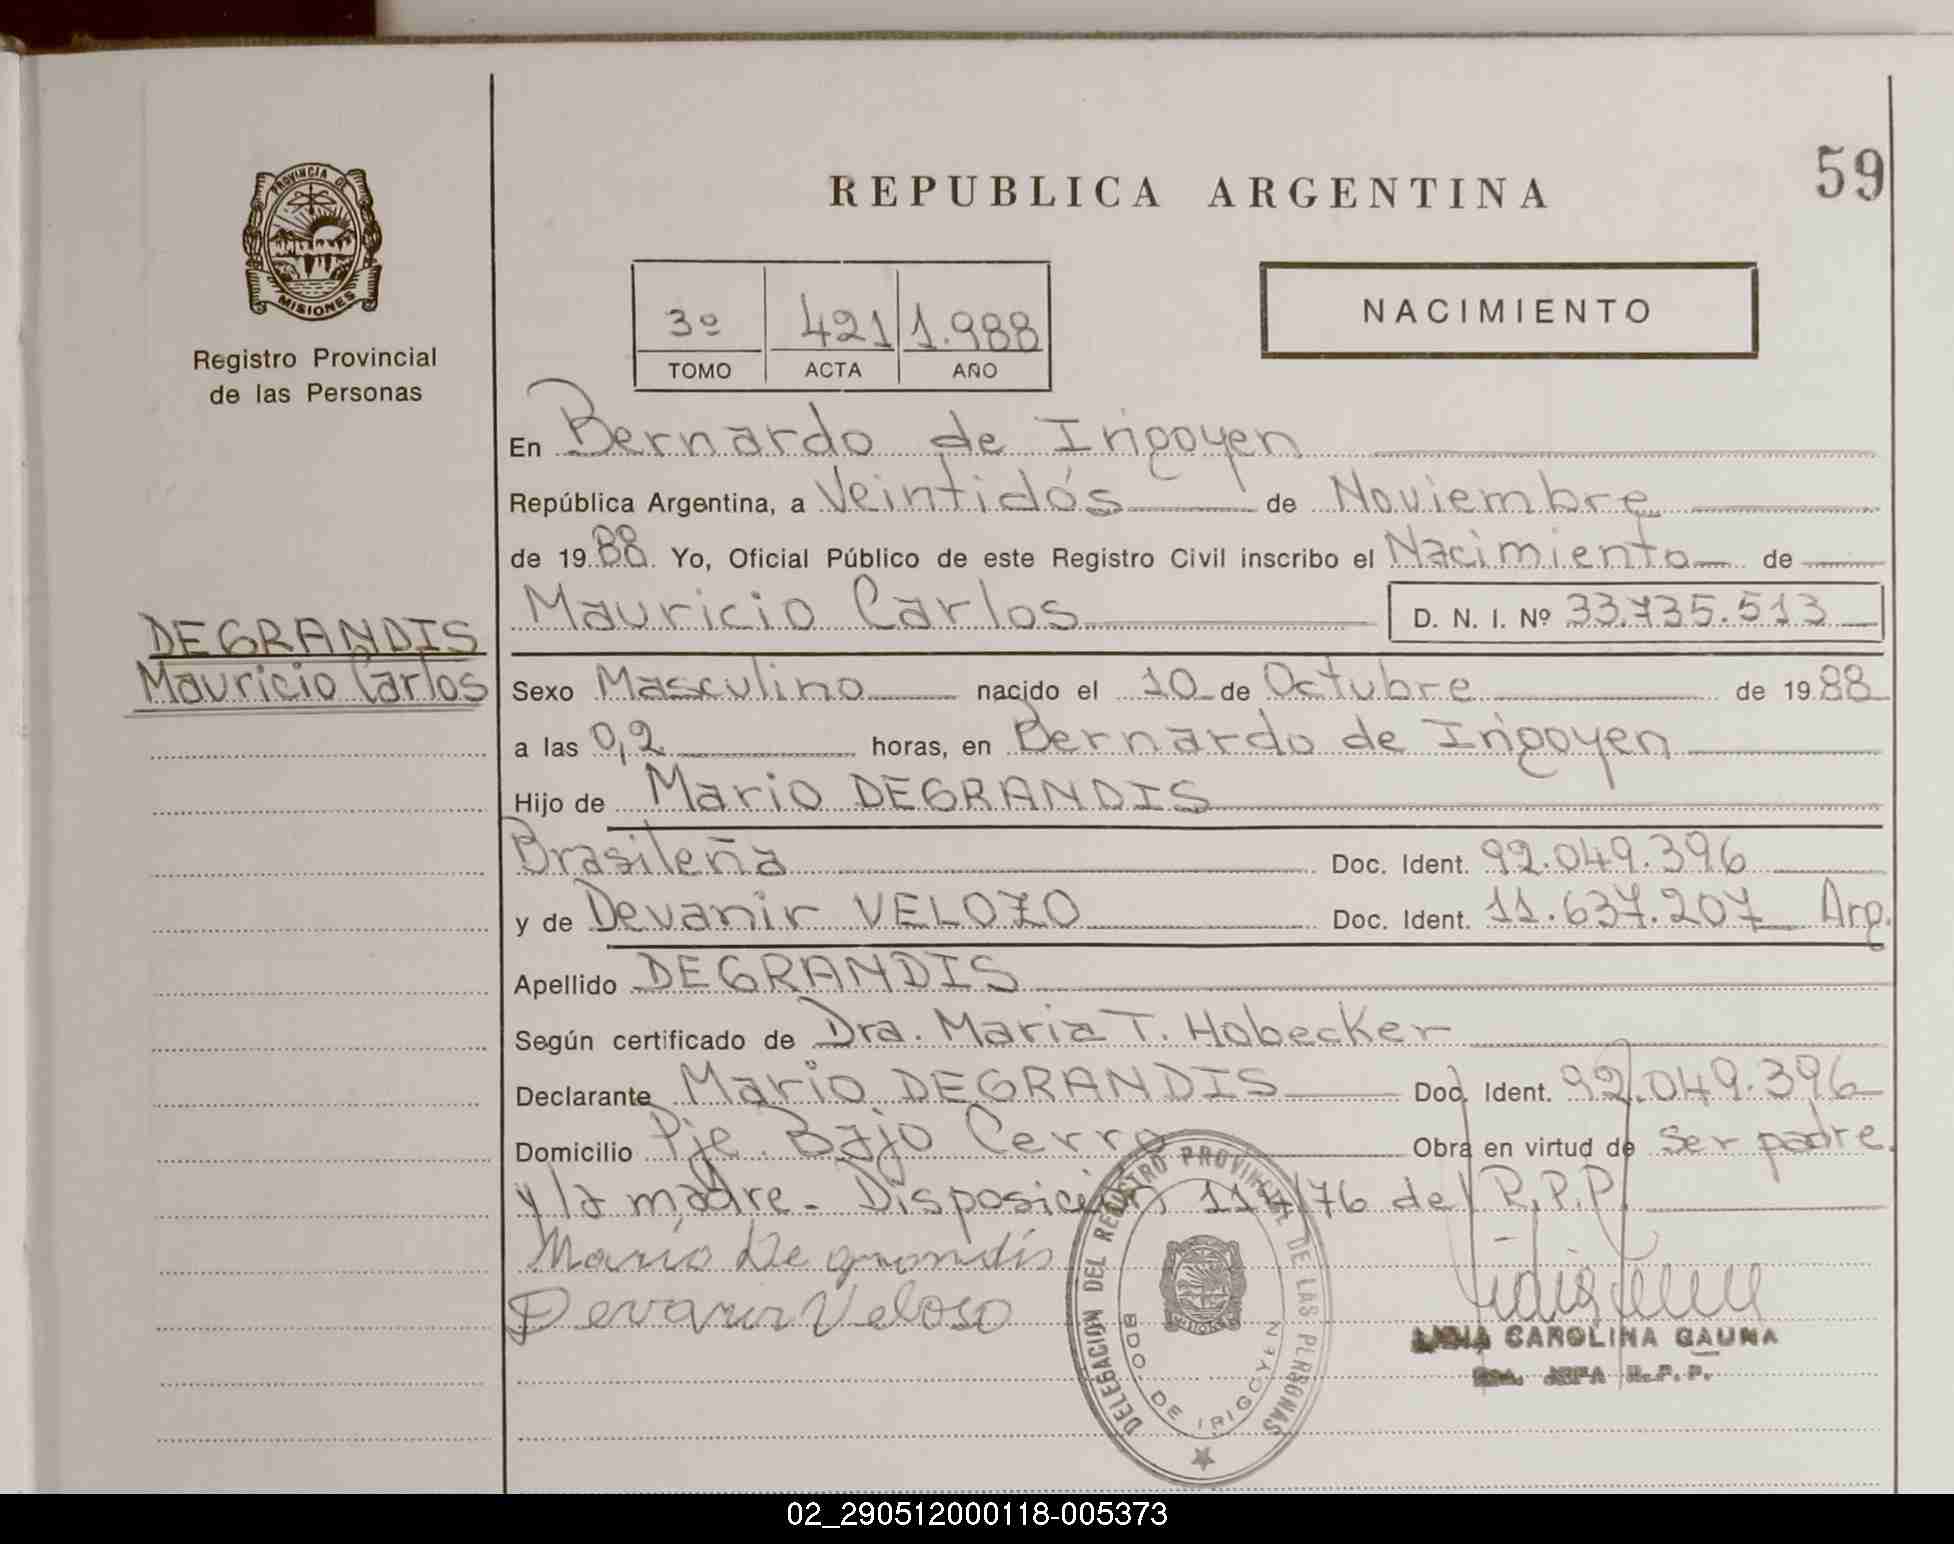 59
PROVINCIA DE
MISIONES
Registro Provincial
de las Personas
REPUBLICA ARGENTINA
3º 421 1.988
TOMO ACTA AÑO
NACIMIENTO
En Bernardo de Irigoyen
República Argentina, a Veintidós de Noviembre
de 1988 Yo, Oficial Público de este Registro Civil inscribo el Nacimiento de
Mauricio Carlos D. N. I. Nº 33.735.513
DEGRANDIS
Mauricio Carlos
Sexo Masculino nacido el 10 de Octubre de 1988
a las 0,2 horas, en Bernardo de Irigoyen
Hijo de Mario DEGRANDIS
Brasileña Doc. Ident. 92.049.396
y de Devanir VELOZO Doc. Ident. 11.637.207 Arg.
Apellido DEGRANDIS
Según certificado de Dra. Maria T. Hobecker
Declarante Mario DEGRANDIS Doc. Ident. 92.049.396
Domicilio Pje. Bajo Cerro Obra en virtud de ser padre
y la madre - Disposición 114/76 del R.P.P.
Mario De grandis
Devanir Veloso
DELEGACION DEL REGISTRO PROVINCIAL DE LAS PERSONAS
BDO. DE IRIGOYEN
LIDIA CAROLINA GAUNA
JEFA R.P.P.
02_290512000118-005373